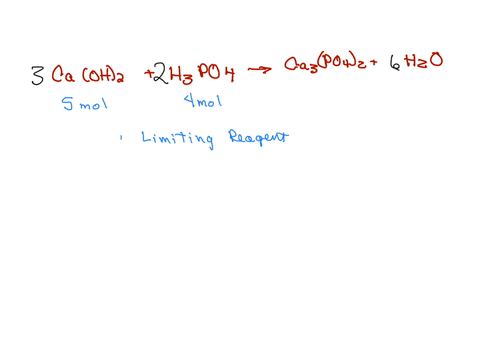 3 Ca(OH)2 + 2 H3PO4 → Ca3(PO4)2 + 6 H2O
5 mol 4 mol
Limiting Reagent